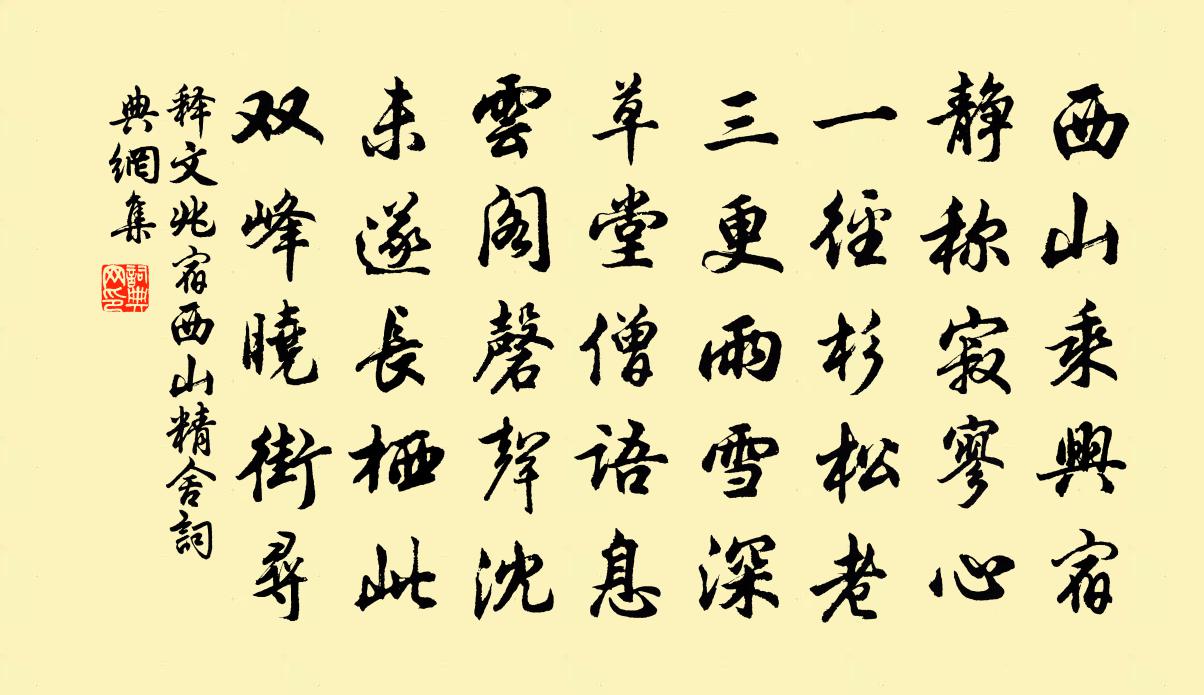 西山乘興宿
静称寂寥心
一徑杉松老
三更雨雪深
草堂僧語息
雲閣磬聲沈
未遂長栖此
双峰曉街尋
释文兆宿西山精舍詞
典網集
詞典网印